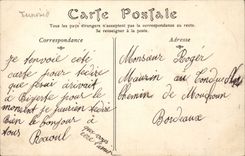 Tunisie
Carte Postale
Tous les pays étrangers n'acceptent pas la correspondance au recto.
Se renseigner à la poste.
Correspondance
Adresse
je tenvoie cete
carte pour tedire
que jesui arrivait
à Bizerte pour le
moment je
bien le bonjour à
tous Raoul
Monsieur Roger
Maurin au
chemin de
Bordeaux